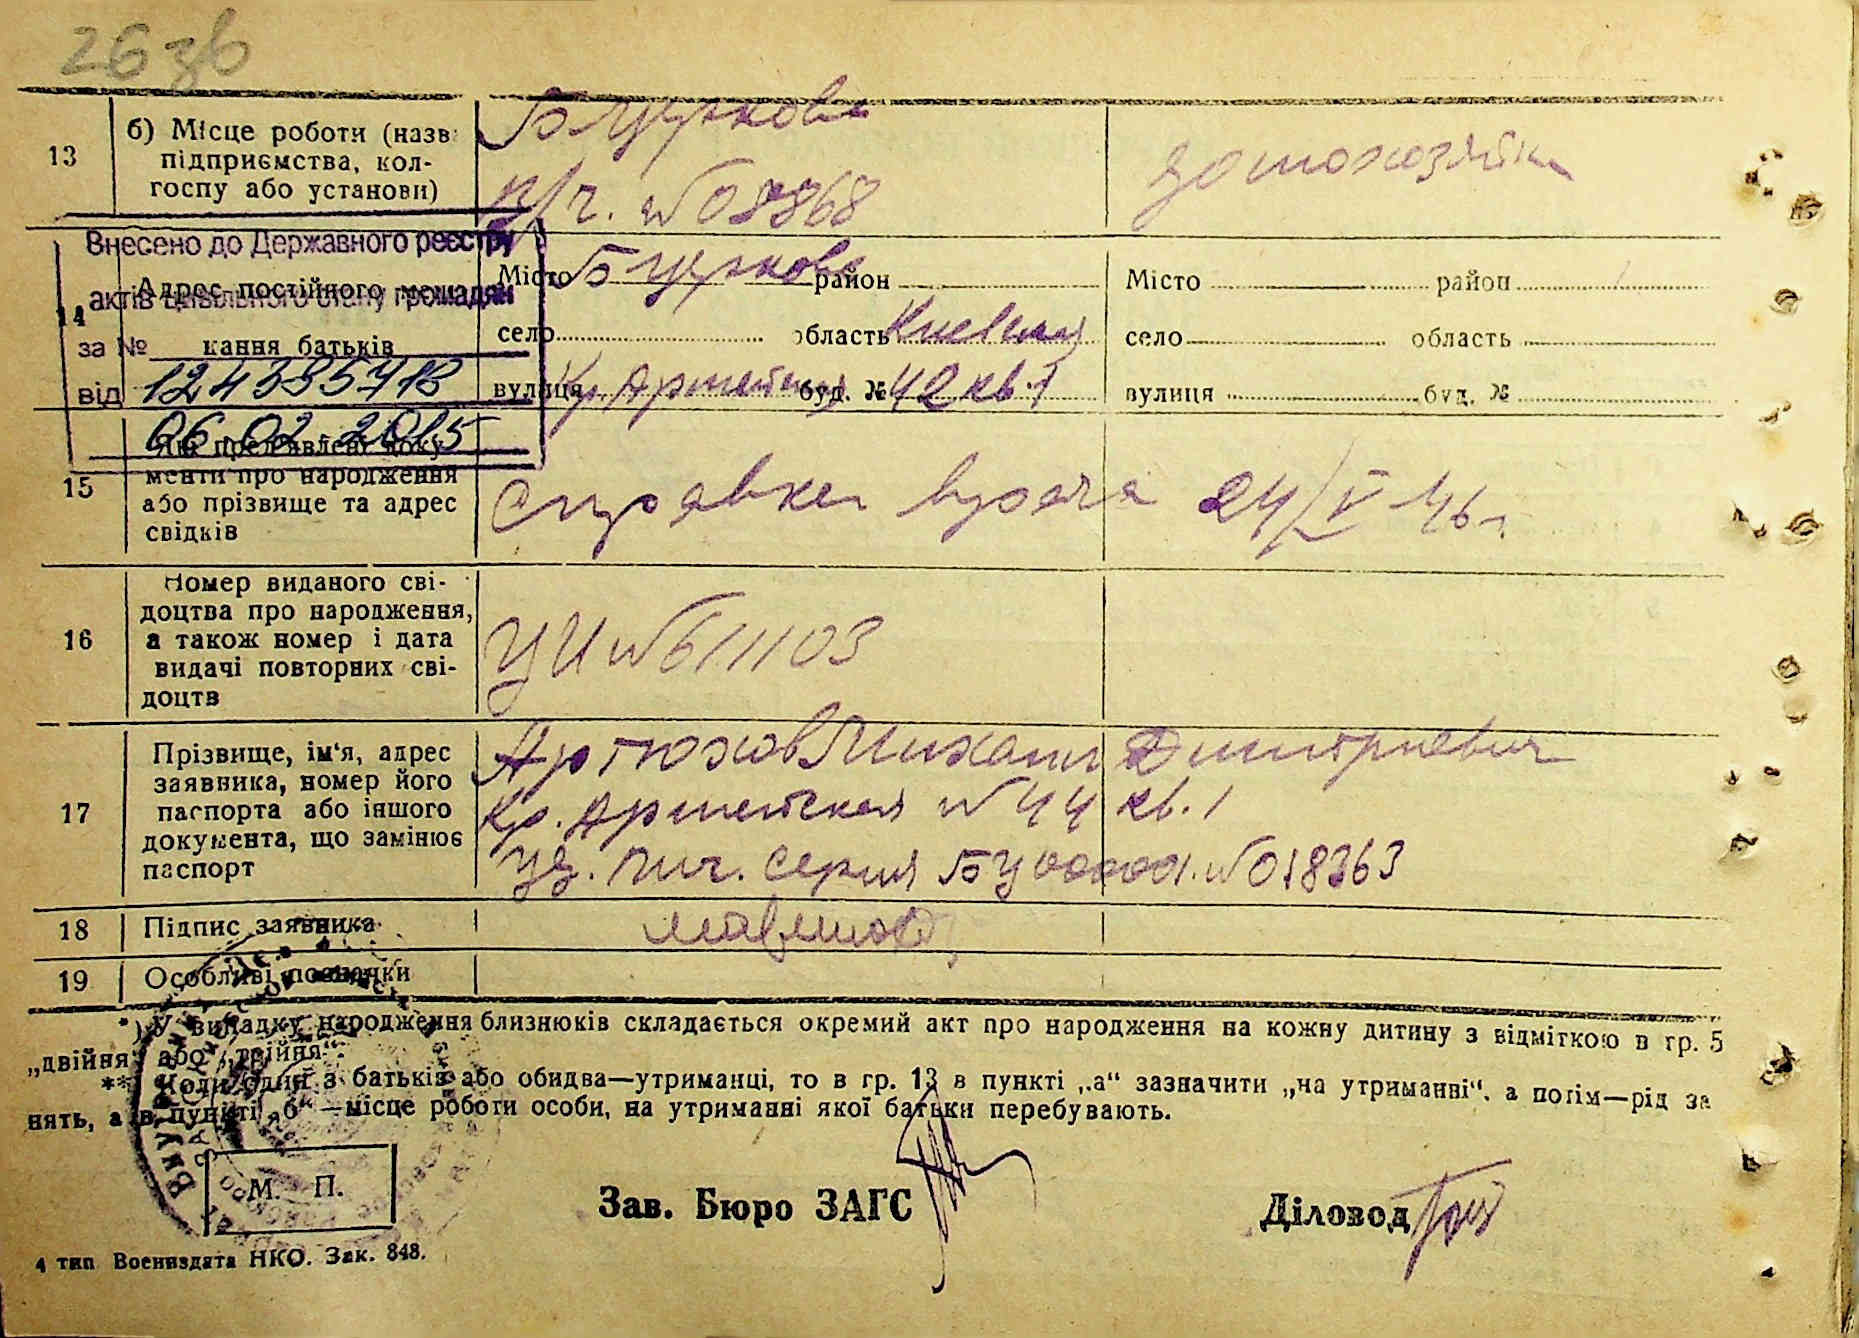 26 зв
13
б) Місце роботи (назв
підприємства, кол-
госпу або установи)
Б Церковь
п/ч. №08868
домохозяйка
Внесено до Державного реєстру
актів цивільного стану громадян
за №
від 12438571В
06.02.2015
14
Адрес постійного мешкання батьків
Місто Б Церковь район
село область Киевская
вулиця Кр. Армейская буд. № 42 кв. 1
Місто район
село область
вулиця буд. №
15
Які пред'явлені доку-
менти про народження
або прізвище та адрес
свідків
Справка врача 24/V 46 г.
16
Номер виданого сві-
доцтва про народження,
а також номер і дата
видачі повторних сві-
доцтв
УИ №611103
17
Прізвище, ім'я, адрес
заявника, номер його
паспорта або іншого
документа, що замінює
паспорт
Артюхов Михаил Дмитриевич
Кр. Армейская № 44 кв. 1
уд. лич. серия БУ №018363
18
Підпис заявника
19
Особливі позначки
*) У випадку народження близнюків складається окремий акт про народження на кожну дитину з відміткою в гр. 5
„двійня“ або „трійня“.
** Коли один з батьків або обидва—утриманці, то в гр. 13 в пункті „а“ зазначити „на утриманні“. а потім—рід за
нять, а в пункті „б“—місце роботи особи, на утриманні якої батьки перебувають.
М. П.
Зав. Бюро ЗАГС
Діловод
4 тип Воениздата НКО. Зак. 848.